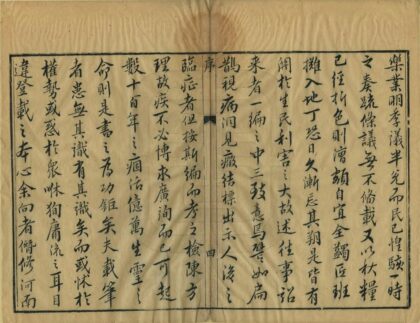 樂業明季議半而民已惶駭一時
之奏疏條議無不備載又以秋糧
已徑折色則額自宜全蠲匠班
攤入地丁恐日久漸忘其朔是皆有
關於生民利害之大故述往事詔
來者一編之中三致意焉譬如扁
鵲視病洞見癥結標出示人後之
序
四
臨症者但按斯編而考之檢陳方
理故疾不必博求廣詢而已可起
數十百年之痼活億萬生靈之
命則是書之為功鉅矣夫載筆
者患無其識有其識矣而或怵於
權勢或惑於衆咻狥庸流之耳目
違登載之本心余向者修河南